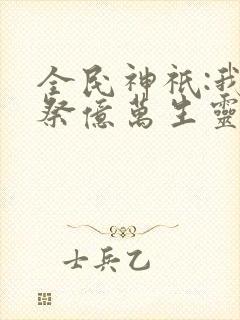 全民神祇:我
祭億萬生靈
士兵乙